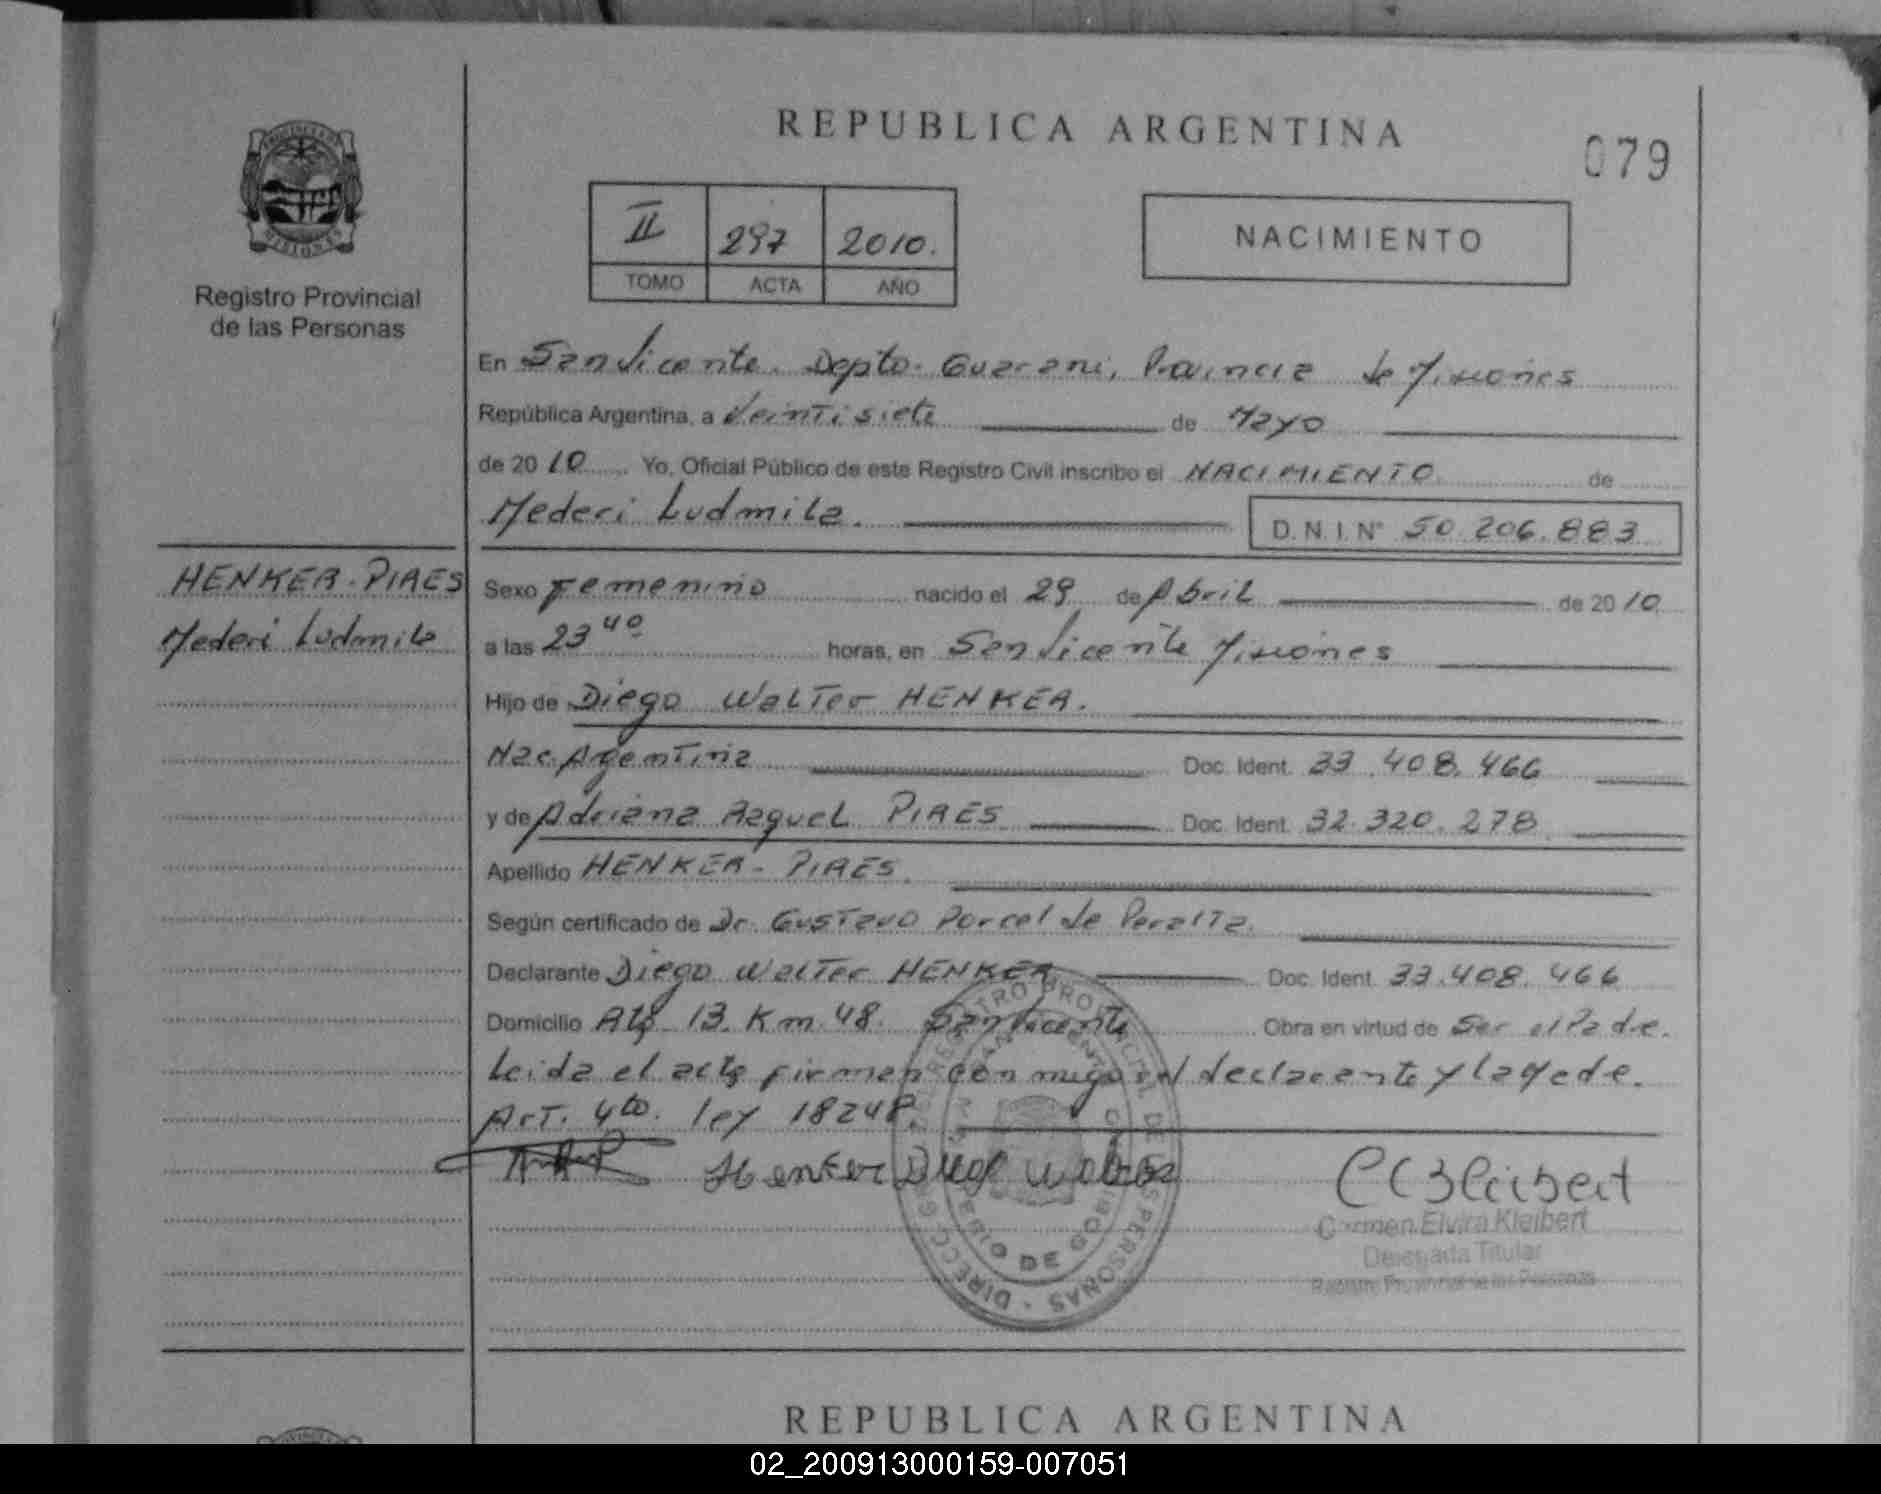 REPUBLICA ARGENTINA
079
PROVINCIA
MISIONES
Registro Provincial
de las Personas
II 297 2010.
TOMO ACTA AÑO
NACIMIENTO
En San Vicente. Depto. Guarani, Provincia de Misiones
República Argentina, a Veintisiete de Mayo
de 20 10 Yo, Oficial Público de este Registro Civil inscribo el NACIMIENTO de
Mederi Ludmila. D. N. I. N° 50.206.883
HENKER-PIRES
Mederi Ludmila
Sexo Femenino nacido el 29 de Abril de 20 10
a las 23 40 horas, en San Vicente Misiones
Hijo de Diego Walter HENKER.
Nac. Argentina Doc. Ident. 33.408.466
y de Adriana Raquel PIRES Doc. Ident. 32.320.278
Apellido HENKER-PIRES.
Según certificado de Dr. Gustavo Porcel de Peralta.
Declarante Diego Walter HENKER Doc. Ident. 33.408.466
Domicilio Km. 48. San Vicente Obra en virtud de Ser el Padre.
Leida el acta firman con migo el declarante y
Art. 4to. ley 18248.
Henker Diego Walter
Carmen Elvira Kleibert
Delegada Titular
Registro Provincial de las Personas
REPUBLICA ARGENTINA
02_200913000159-007051